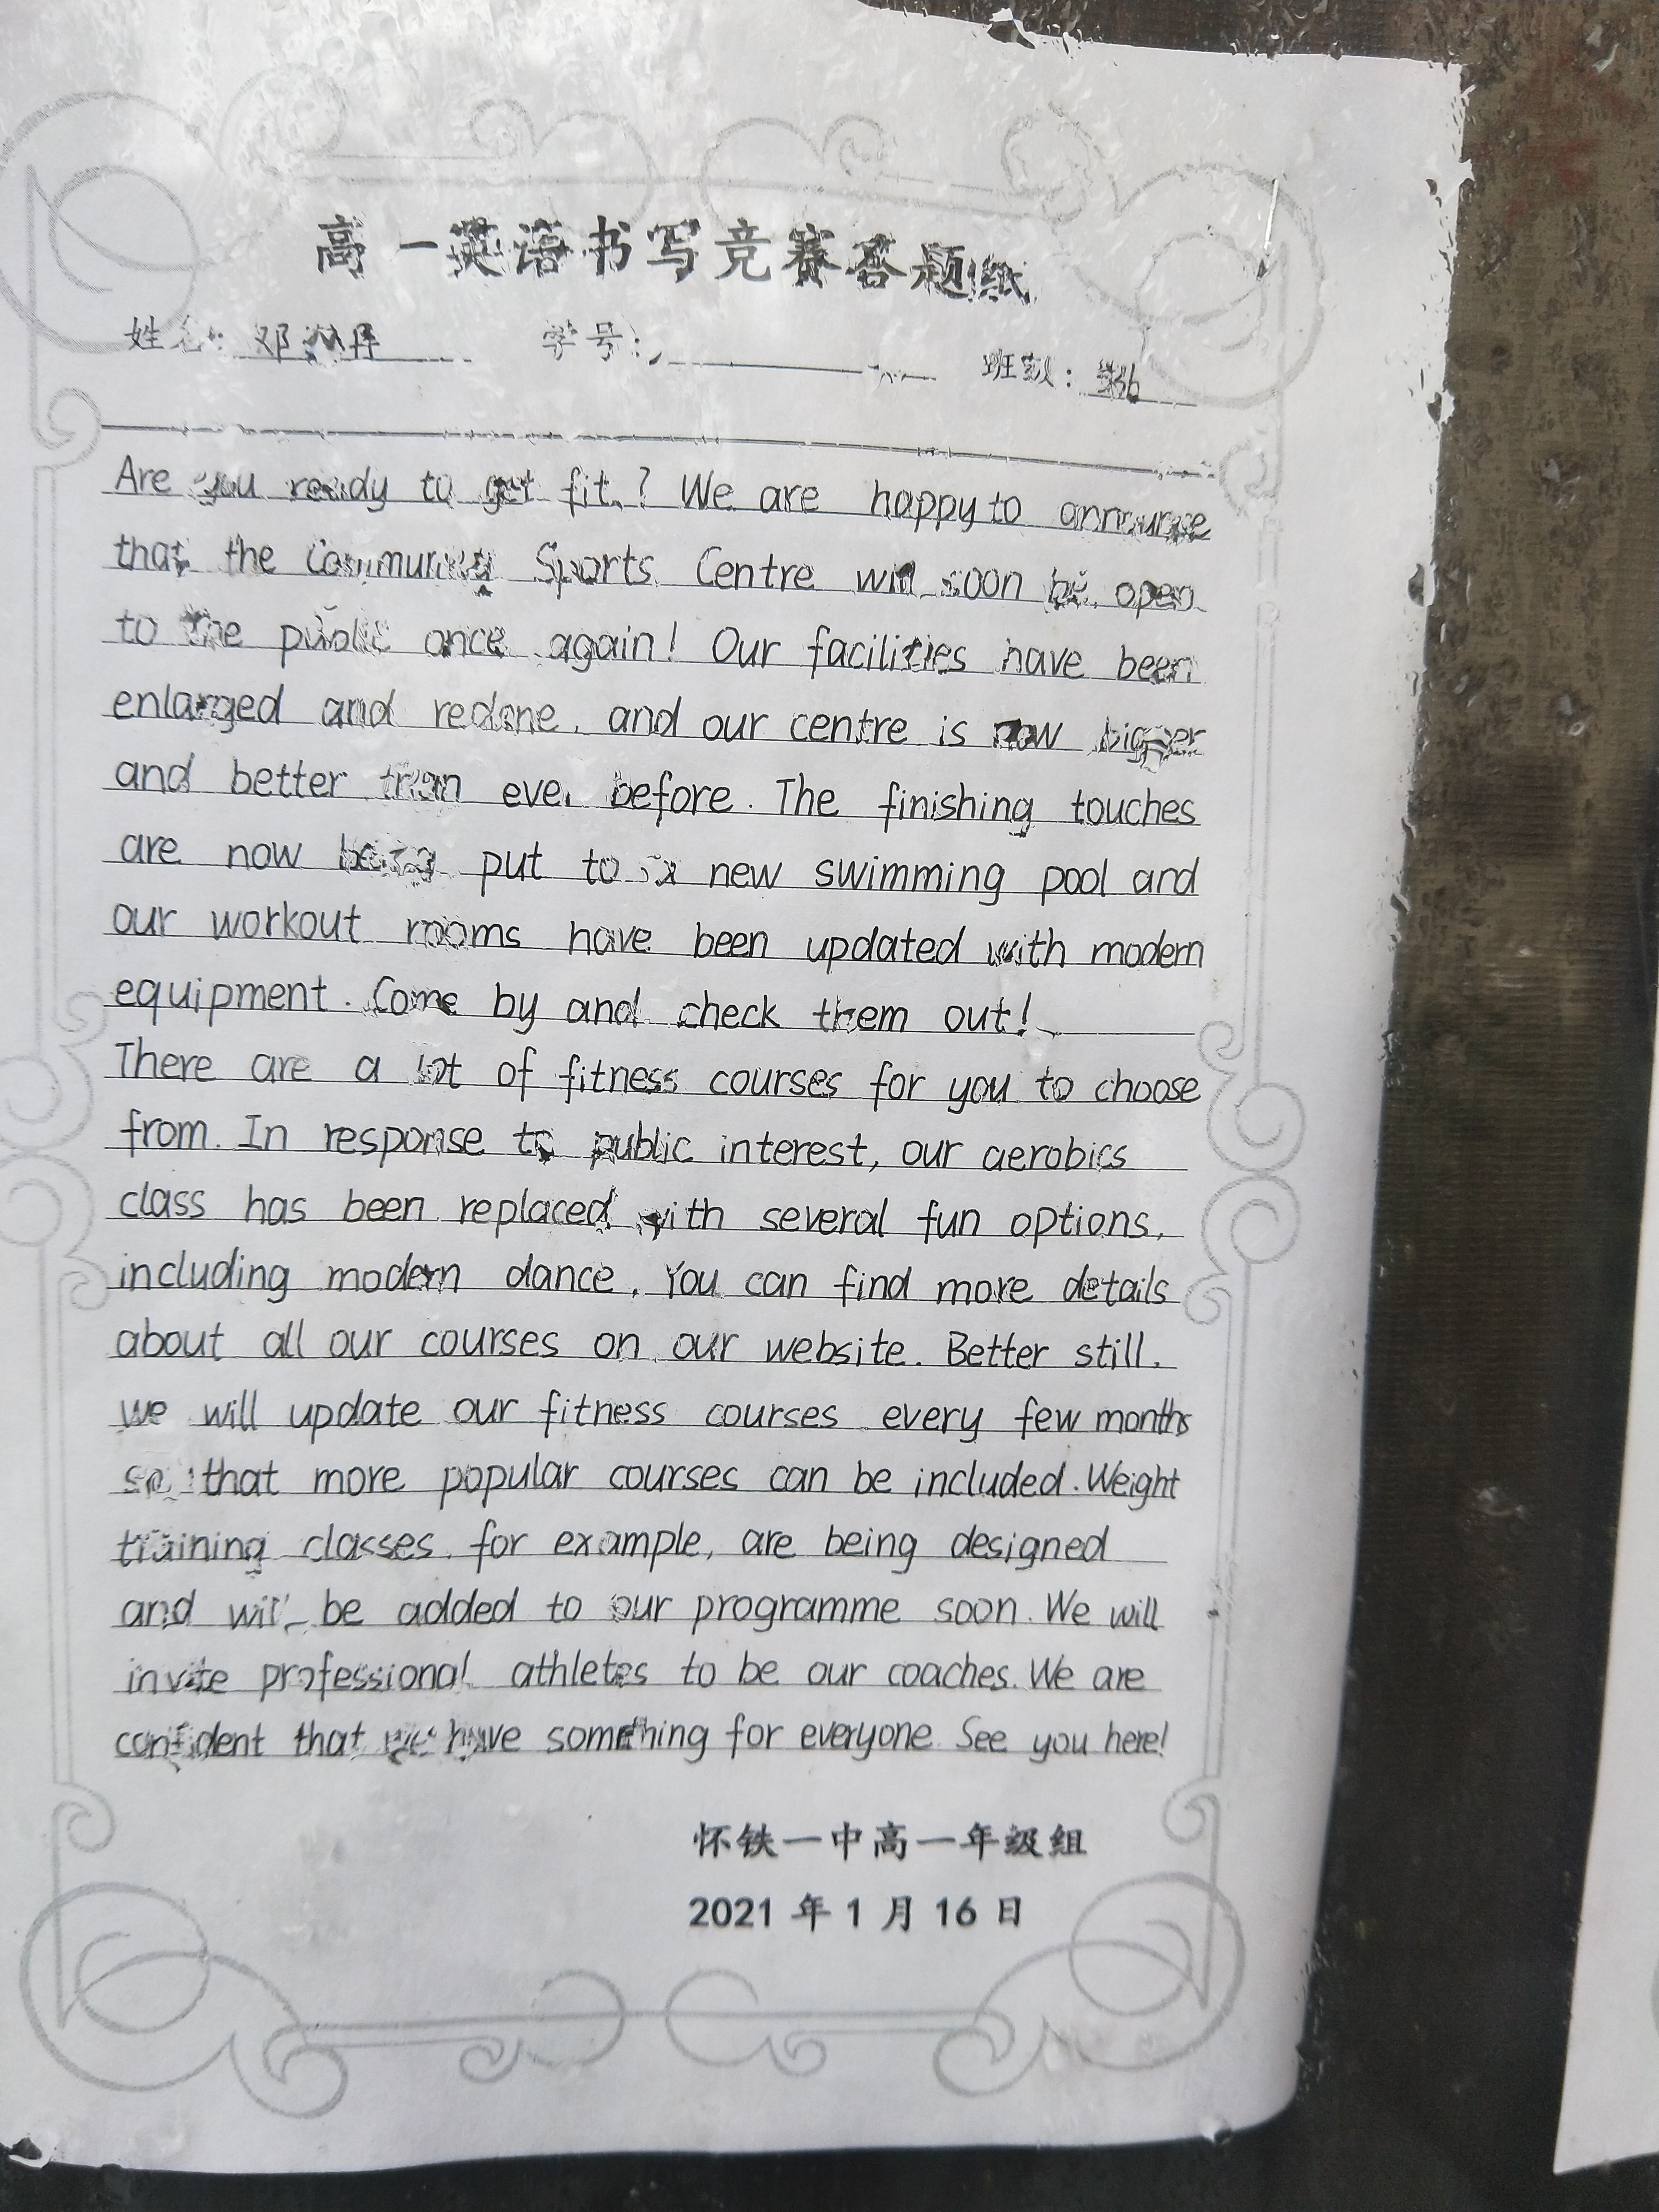 高一英语书写竞赛答题纸
姓名: 邓 丹 学号: 班级:
Are you ready to get fit? We are happy to announce
that the Community Sports Centre will soon be open
to the public once again! Our facilities have been
enlarged and redone, and our centre is now bigger
and better than ever before. The finishing touches
are now being put to a new swimming pool and
our workout rooms have been updated with modern
equipment. Come by and check them out!
There are a lot of fitness courses for you to choose
from. In response to public interest, our aerobics
class has been replaced with several fun options,
including modern dance. You can find more details
about all our courses on our website. Better still,
we will update our fitness courses every few months
so that more popular courses can be included. Weight
training classes, for example, are being designed
and will be added to our programme soon. We will
invite professional athletes to be our coaches. We are
confident that we have something for everyone. See you here!
怀铁一中高一年级组
2021 年 1 月 16 日